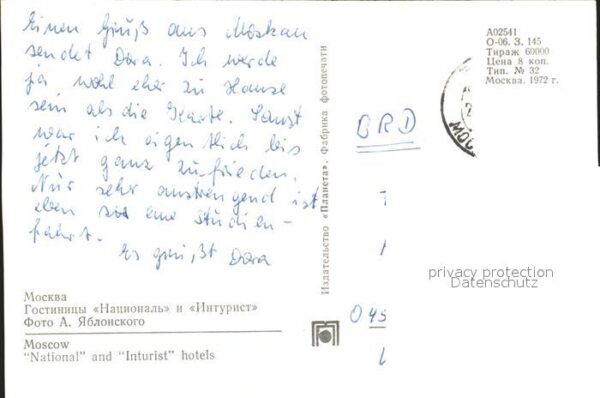 Einen Gruß aus Moskau
sendet Dora. Ich werde
ja wohl eher zu Hause
sein als die Karte. Sonst
war ich eigentlich bis
jetzt ganz zufrieden.
Nur sehr anstrengend ist
eben so eine Studien-
fahrt.
Es grüßt Dora
Москва
Гостиницы «Националь» и «Интурист»
Фото А. Яблонского
Moscow
"National" and "Inturist" hotels
Издательство «Планета». Фабрика фотопечати
А02541
О-06. З. 145
Тираж 60000
Цена 8 коп.
Тип. № 32
Москва. 1972 г.
МОС
BRD
privacy protection
Datenschutz
045